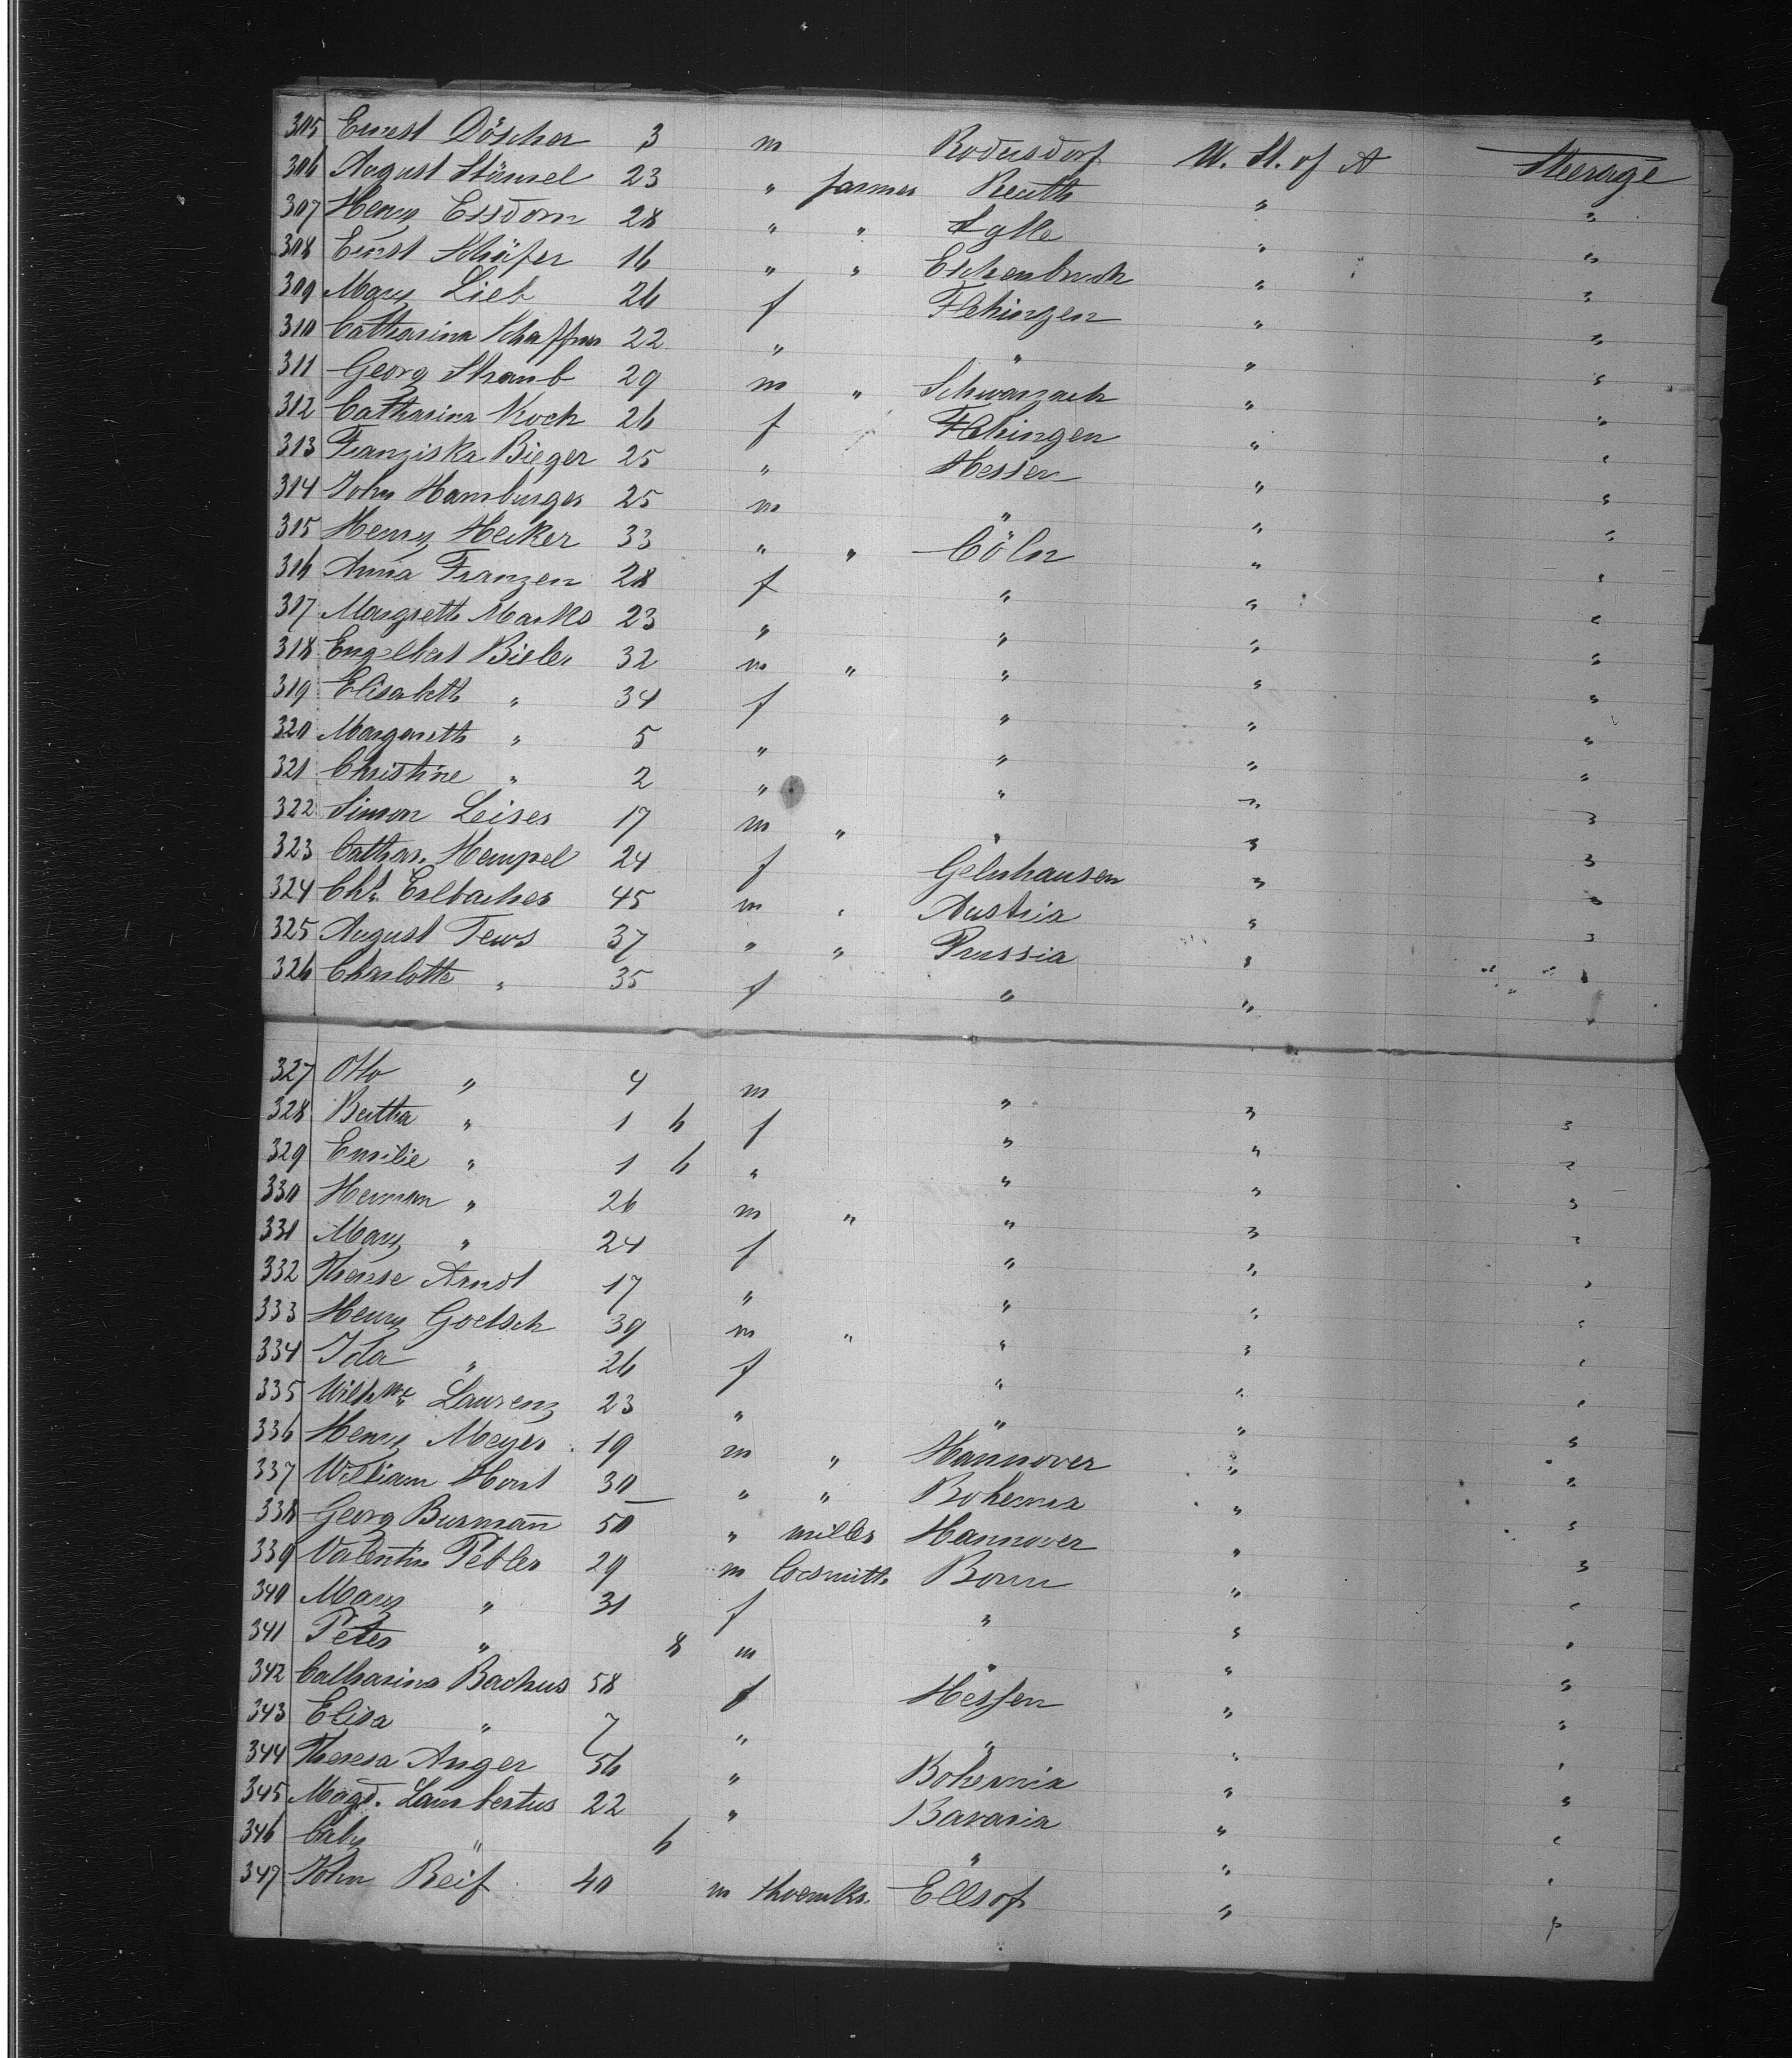 305 Ernst Döscher 3 m Rodusdorf U. St. of A Steerage
306 August Stänsel 23 " farmer Reuth " "
307 Henry Essdorn 28 " " Aglle " "
308 Ernst Schäfer 16 " " Eschenbruch " "
309 Mary Lieb 26 f Flehingen " "
310 Catharina Schaffner 22 " " " "
311 Georg Straub 29 m " Schwarzach " "
312 Catharina Koch 26 f Flehingen " "
313 Franziska Bieger 25 " Hessen " "
314 John Hamburger 25 m " " "
315 Henry Hecker 33 " " Cöln " "
316 Anna Franzen 28 f " " "
317 Margreth Marks 23 " " " "
318 Engelbert Bieler 32 m " " " "
319 Elisabeth " 34 f " " "
320 Margareth " 5 " " " "
321 Christine " 2 " " " "
322 Simon Leiser 17 m " " " "
323 Cathar. Hempel 24 f Gelnhausen " "
324 Chr. Erlbacher 45 m " Austria " "
325 August Tews 37 " " Prussia " "
326 Charlotte " 35 f " " "
327 Otto " 4 m " " "
328 Bertha " 1 6 f " " "
329 Emilie " 1 6 " " " "
330 Herman " 26 m " " " "
331 Mary " 24 f " " "
332 Therese Arndt 17 " " " "
333 Henry Goetsch 39 m " " " "
334 Ida " 26 f " " "
335 Wilhme Laurenz 23 " " " "
336 Henry Meyer 19 m " Hannover " "
337 William Hont 30 " " Bohemia " "
338 Georg Burmann 50 " miller Hannover " "
339 Valentin Pebler 29 m locsmith Bonn " "
340 Mary " 31 f " " "
341 Peter " 8 m " " "
342 Catharina Bachus 58 f Hessen " "
343 Elisa " 7 " " " "
344 Theresa Anger 56 " Bohemia " "
345 Magd. Lambertus 22 " Bavaria " "
346 Caly " 6 " " "
347 John Reif 40 m shoemkr. Ellsof " "